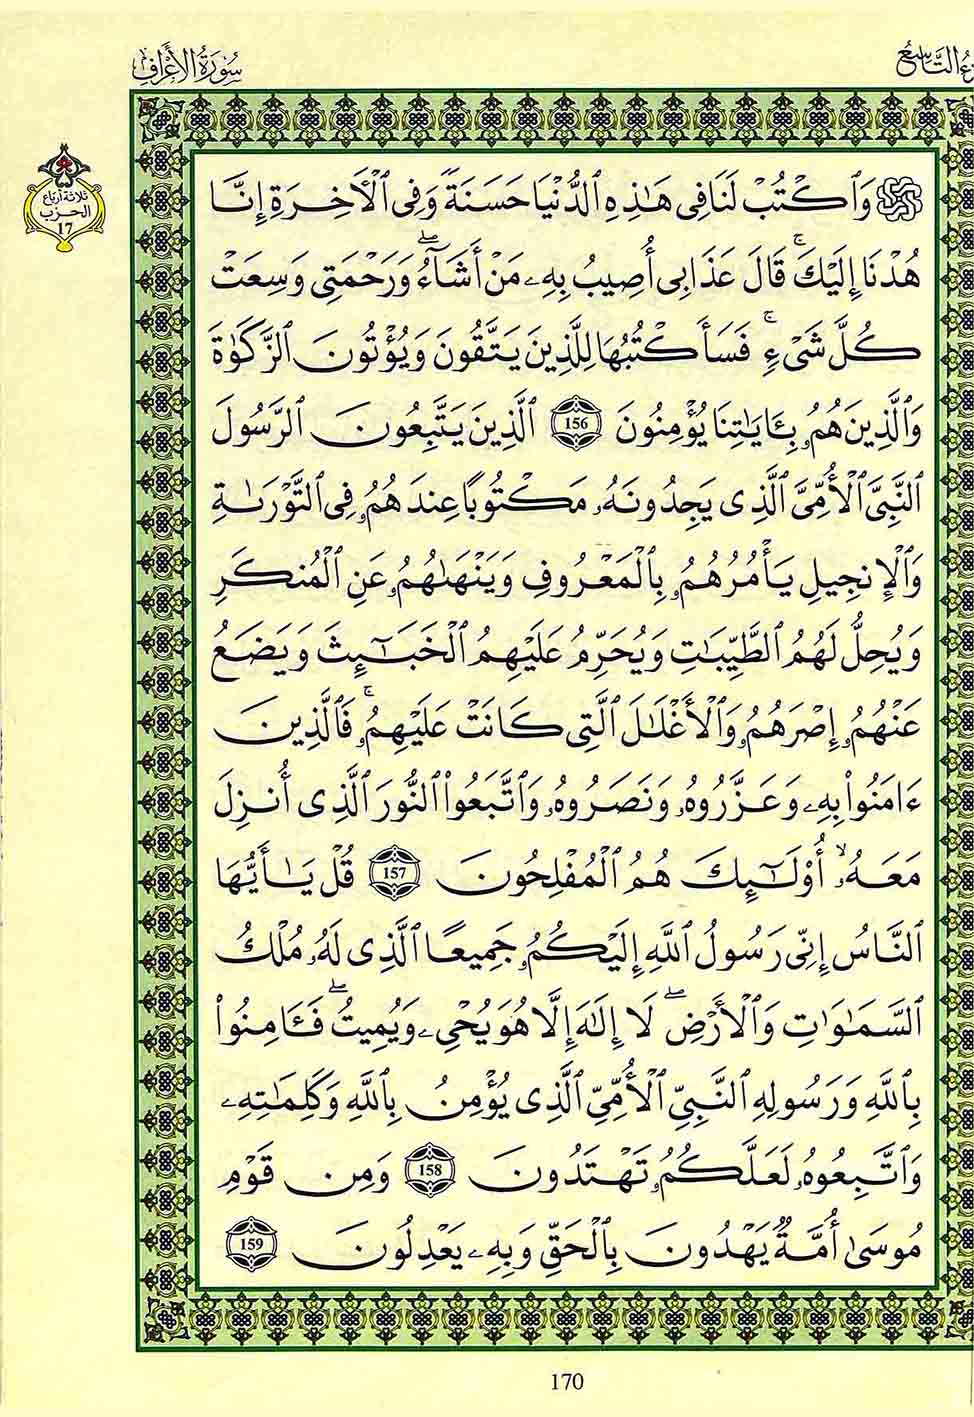 سُورَةُ الأَعْرَافِ
التَّاسِعُ
ثلاثة أرباع
الحزب
17
۞ وَٱكْتُبْ لَنَا فِى هَٰذِهِ ٱلدُّنْيَا حَسَنَةً وَفِى ٱلْأَخِرَةِ إِنَّا
هُدْنَا إِلَيْكَ ۚ قَالَ عَذَابِى أُصِيبُ بِهِۦ مَنْ أَشَآءُ ۖ وَرَحْمَتِى وَسِعَتْ
كُلَّ شَىْءٍ ۚ فَسَأَكْتُبُهَا لِلَّذِينَ يَتَّقُونَ وَيُؤْتُونَ ٱلزَّكَوٰةَ
وَٱلَّذِينَ هُمُۥ بِـَٔايَٰتِنَا يُؤْمِنُونَ 156 ٱلَّذِينَ يَتَّبِعُونَ ٱلرَّسُولَ
ٱلنَّبِىَّ ٱلْأُمِّىَّ ٱلَّذِى يَجِدُونَهُۥ مَكْتُوبًا عِندَهُمُۥ فِى ٱلتَّوْرَىٰةِ
وَٱلْإِنجِيلِ يَأْمُرُهُمُۥ بِٱلْمَعْرُوفِ وَيَنْهَىٰهُمُۥ عَنِ ٱلْمُنكَرِ
وَيُحِلُّ لَهُمُ ٱلطَّيِّبَٰتِ وَيُحَرِّمُ عَلَيْهِمُ ٱلْخَبَٰٓئِثَ وَيَضَعُ
عَنْهُمُۥ إِصْرَهُمُۥ وَٱلْأَغْلَٰلَ ٱلَّتِى كَانَتْ عَلَيْهِمُۥ ۚ فَٱلَّذِينَ
ءَامَنُوا۟ بِهِۦ وَعَزَّرُوهُۥ وَنَصَرُوهُۥ وَٱتَّبَعُوا۟ ٱلنُّورَ ٱلَّذِى أُنزِلَ
مَعَهُۥ ۙ أُو۟لَٰٓئِكَ هُمُ ٱلْمُفْلِحُونَ 157 قُلْ يَٰأَيُّهَا
ٱلنَّاسُ إِنِّى رَسُولُ ٱللَّهِ إِلَيْكُمُۥ جَمِيعًا ٱلَّذِى لَهُۥ مُلْكُ
ٱلسَّمَٰوَٰتِ وَٱلْأَرْضِ ۖ لَا إِلَٰهَ إِلَّا هُوَ يُحْىِۦ وَيُمِيتُ ۖ فَـَٔامِنُوا۟
بِٱللَّهِ وَرَسُولِهِ ٱلنَّبِىِّ ٱلْأُمِّىِّ ٱلَّذِى يُؤْمِنُ بِٱللَّهِ وَكَلِمَٰتِهِۦ
وَٱتَّبِعُوهُۥ لَعَلَّكُمُۥ تَهْتَدُونَ 158 وَمِن قَوْمِ
مُوسَىٰ أُمَّةٌ يَهْدُونَ بِٱلْحَقِّ وَبِهِۦ يَعْدِلُونَ 159
170